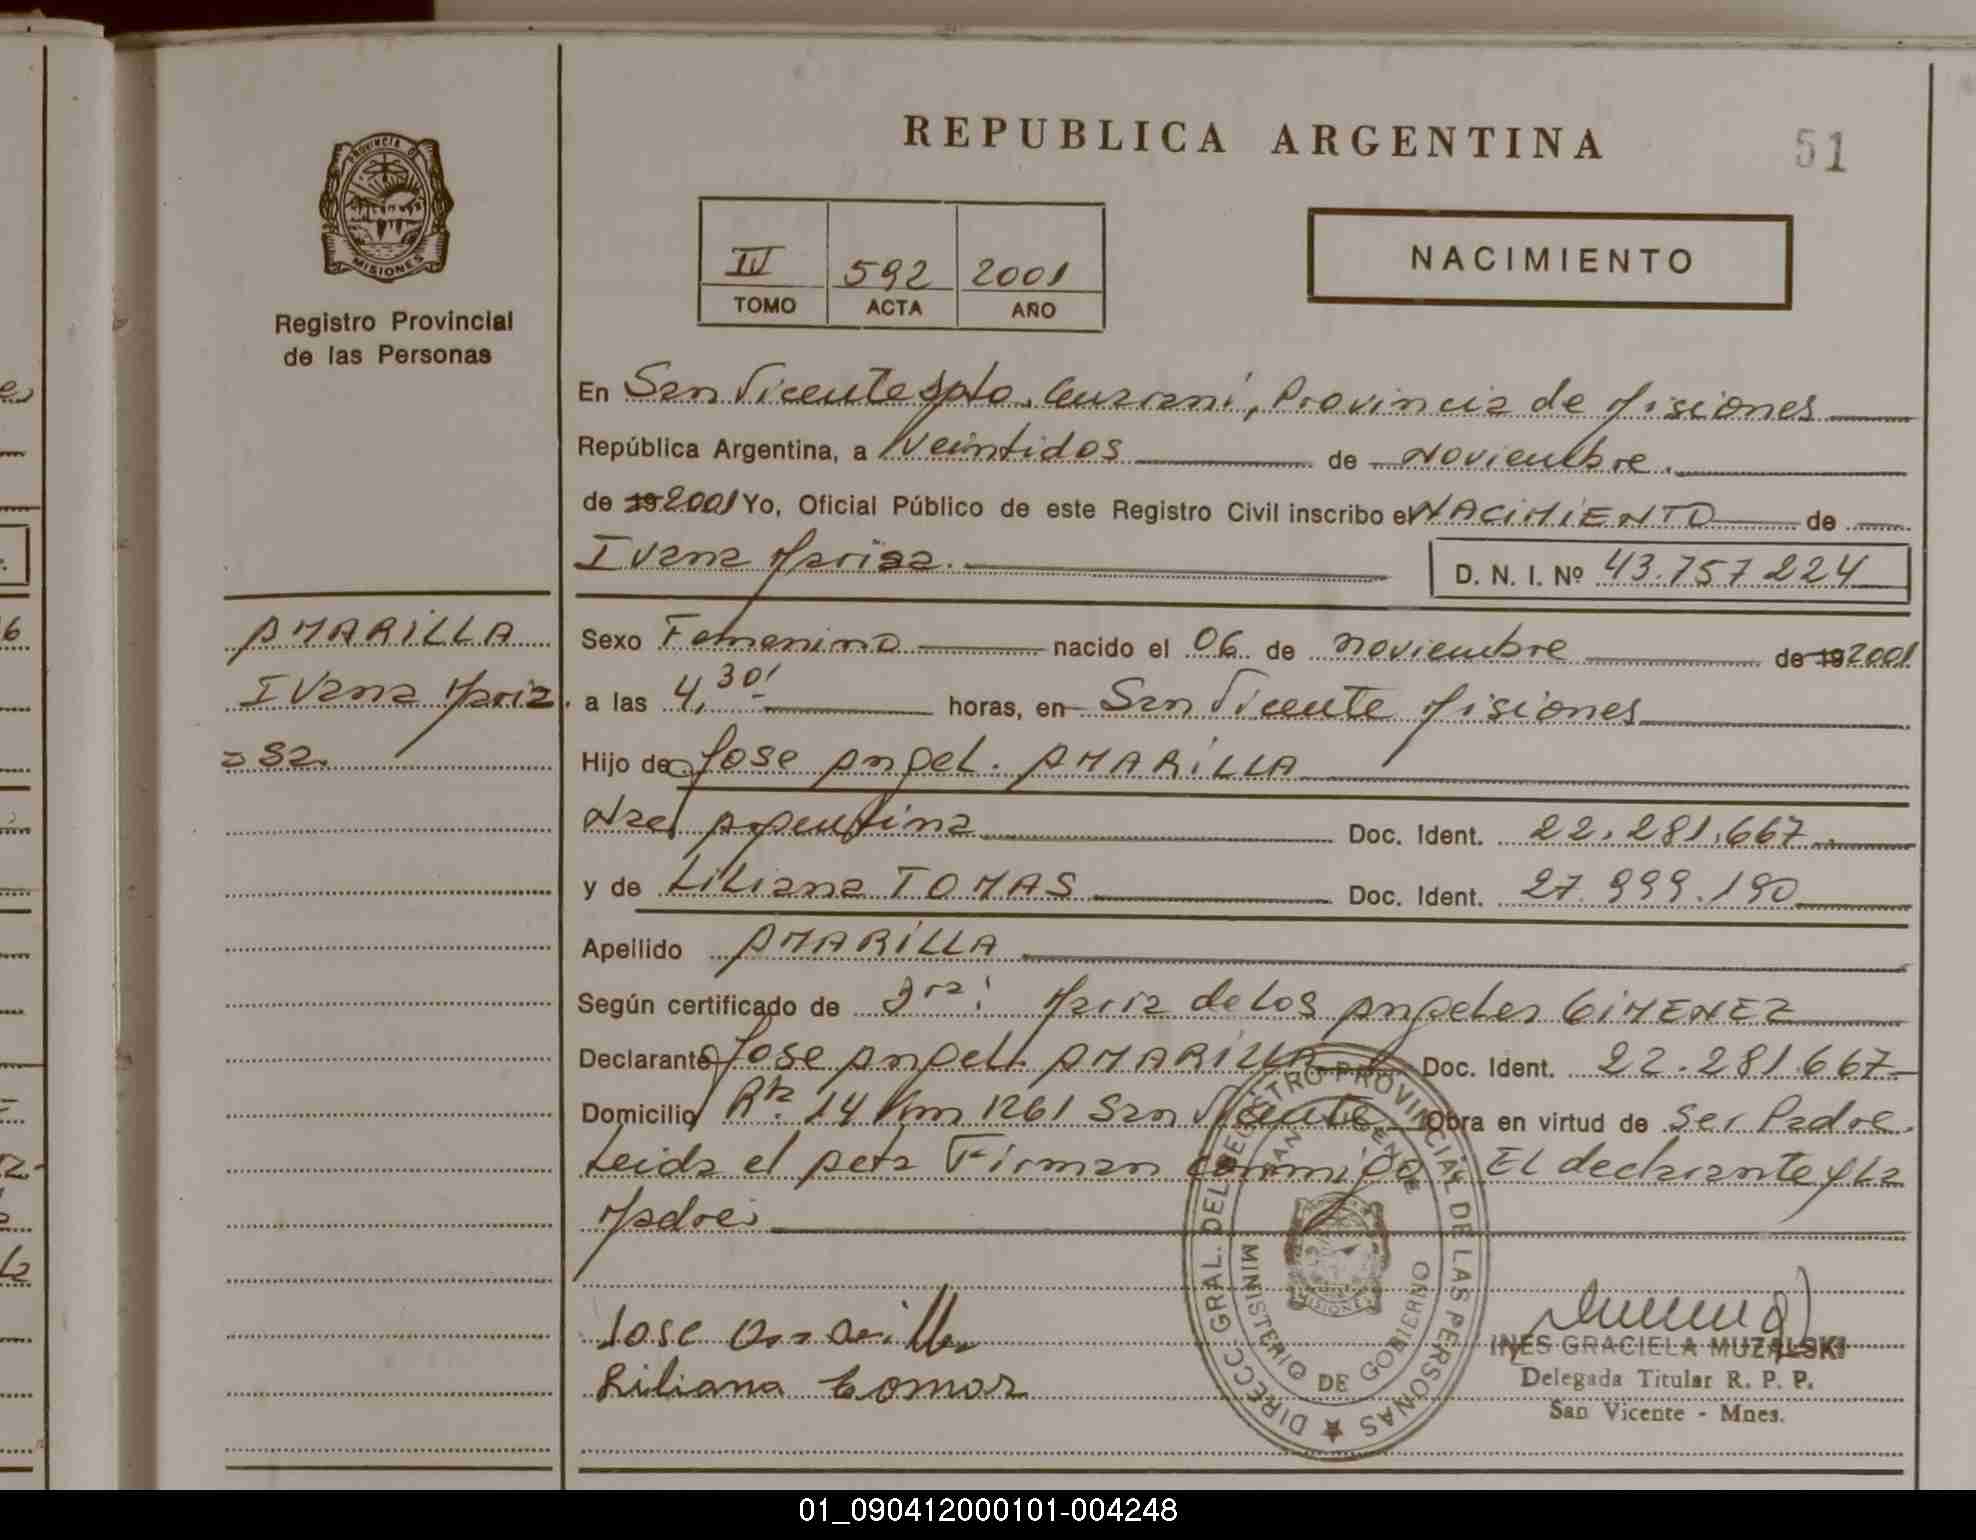 REPUBLICA ARGENTINA
51
PROVINCIA D
MISIONES
Registro Provincial
de las Personas
IV 592 2001
TOMO ACTA AÑO
NACIMIENTO
En San Vicente Dpto. Guarani, Provincia de Misiones
República Argentina, a Veintidos de Noviembre.
de 19 2001 Yo, Oficial Público de este Registro Civil inscribo el NACIMIENTO de
Ivana Marisa.
D. N. I. Nº 43.757.224
AMARILLA
Ivana Mariz
232.
Sexo Femenino nacido el 06 de noviembre de 19 2001
a las 4,30' horas, en San Vicente Misiones
Hijo de Jose Angel. AMARILLA
Nac. Argentina Doc. Ident. 22.281.667.
y de Liliana TOMAS Doc. Ident. 27.999.190
Apellido AMARILLA
Según certificado de Dra: Maria de Los Angeles GIMENEZ
Declarante Jose Angel. AMARILLA Doc. Ident. 22.281.667
Domicilio Rta. 14 Km 1261 San Vicente Obra en virtud de ser Padre.
Leida el Acta Firman conmigo, El declarante y La
Madre.
Jose Amarilla
Liliana Tomas
DIRECC GRAL. DEL REGISTRO PROVINCIAL DE LAS PERSONAS
MINISTERIO DE GOBIERNO
SAN VICENTE
MISIONES
INES GRACIELA MUZALSKI
Delegada Titular R. P. P.
San Vicente - Mnes.
01_090412000101-004248